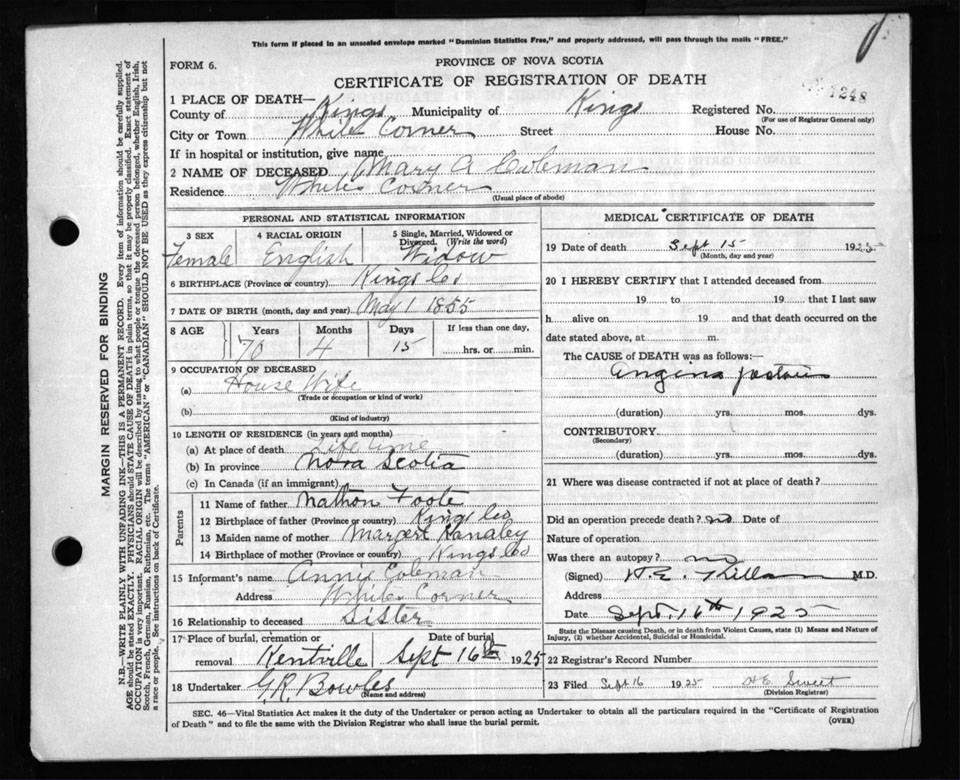 This form if placed in an unsealed envelope marked "Dominion Statistics Free," and properly addressed, will pass through the mails "FREE."
FORM 6.
PROVINCE OF NOVA SCOTIA
CERTIFICATE OF REGISTRATION OF DEATH
1248
1 PLACE OF DEATH—
County of Kings Municipality of Kings Registered No.
(For use of Registrar General only)
City or Town White Corner Street House No.
If in hospital or institution, give name
2 NAME OF DECEASED Mary A Coleman
Residence White Corner
(Usual place of abode)
PERSONAL AND STATISTICAL INFORMATION
3 SEX 4 RACIAL ORIGIN 5 Single, Married, Widowed or Divorced. (Write the word)
Female English Widow
6 BIRTHPLACE (Province or country) Kings Co
7 DATE OF BIRTH (month, day and year) May 1 1855
8 AGE Years Months Days If less than one day,
70 4 15 hrs. or min.
9 OCCUPATION OF DECEASED
(a) House Wife
(Trade or occupation or kind of work)
(b)
(Kind of industry)
10 LENGTH OF RESIDENCE (in years and months)
(a) At place of death Life time
(b) In province Nova Scotia
(c) In Canada (if an immigrant)
Parents
11 Name of father Nathon Foote
12 Birthplace of father (Province or country) Kings Co
13 Maiden name of mother Margert
14 Birthplace of mother (Province or country) Kings Co
15 Informant's name Annie Coleman
Address White Corner
16 Relationship to deceased Sister
17 Place of burial, cremation or removal Kentville Date of burial Sept 16th 1925
18 Undertaker G.R. Bowles
(Name and address)
MEDICAL CERTIFICATE OF DEATH
19 Date of death Sept 15 1925
(Month, day and year)
20 I HEREBY CERTIFY that I attended deceased from
19 to 19 that I last saw
h alive on 19 and that death occurred on the
date stated above, at m.
The CAUSE of DEATH was as follows:—
Angina
(duration) yrs. mos. dys.
CONTRIBUTORY
(Secondary)
(duration) yrs. mos. dys.
21 Where was disease contracted if not at place of death?
Did an operation precede death? no Date of
Nature of operation
Was there an autopsy? no
(Signed) H.E. M.D.
Address
Date Sept. 16th 1925
State the Disease causing Death, or in death from Violent Causes, state (1) Means and Nature of Injury, (2) whether Accidental, Suicidal or Homicidal.
22 Registrar's Record Number
23 Filed Sept 16 1925 H E Sweet
(Division Registrar)
SEC. 46—Vital Statistics Act makes it the duty of the Undertaker or person acting as Undertaker to obtain all the particulars required in the "Certificate of Registration
of Death" and to file the same with the Division Registrar who shall issue the burial permit.
(OVER)
MARGIN RESERVED FOR BINDING
N.B.—WRITE PLAINLY WITH UNFADING INK—THIS IS A PERMANENT RECORD. Every item of information should be carefully supplied.
AGE should be stated EXACTLY. PHYSICIANS should STATE CAUSE OF DEATH in plain terms, so that it may be properly classified. Exact statement of
OCCUPATION is very important. RACIAL ORIGIN will be described by stating to what people or tongue the deceased person belonged, whether English, Irish,
Scotch, French, German, Russian, Ruthenian, etc. The terms "AMERICAN" or "CANADIAN" SHOULD NOT BE USED as they express citizenship but not
a race or people. See instructions on back of Certificate.